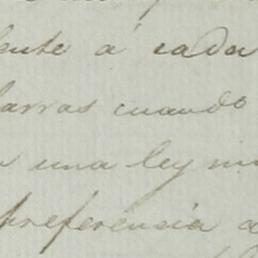 ente á cada
arras cuando
una ley
preferencia a